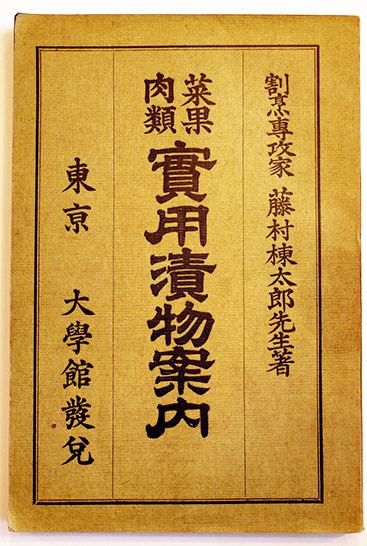 割烹專攻家 藤村棟太郎先生著
菜果
肉類
實用漬物案内
東京 大學館發兌